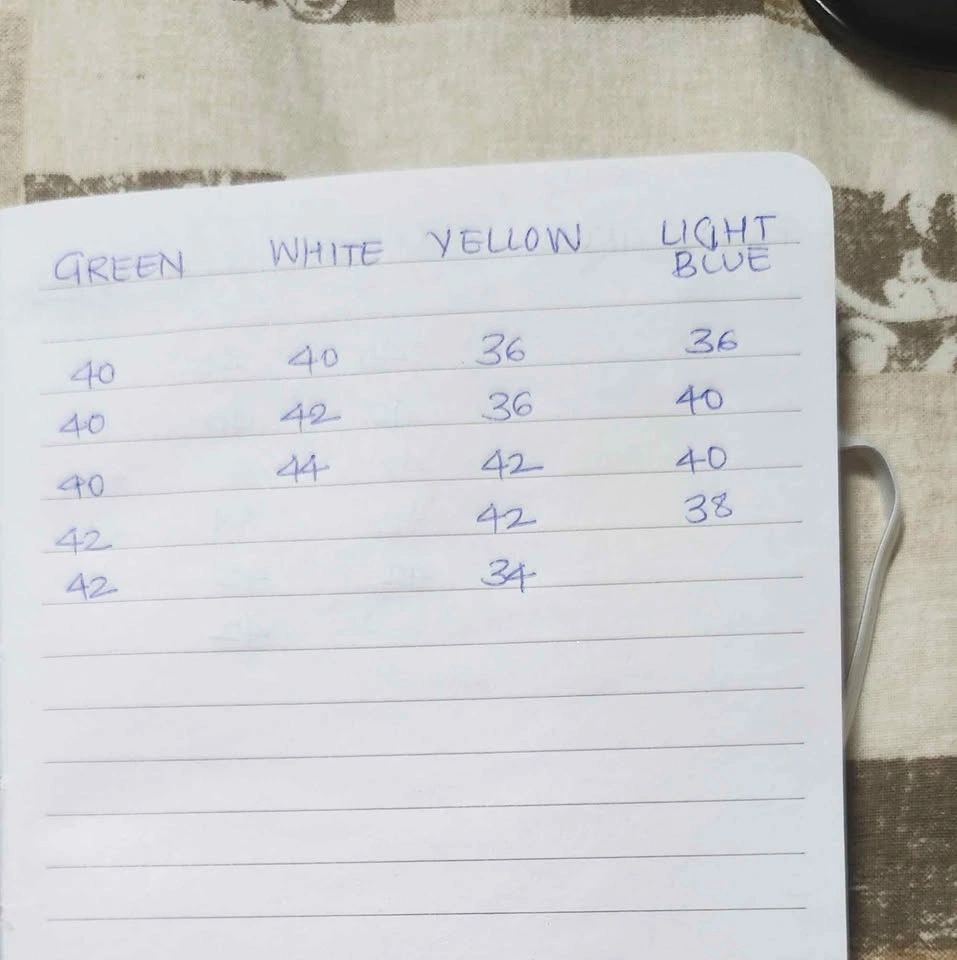 GREEN WHITE YELLOW LIGHT BLUE
40 40 36 36
40 42 36 40
40 44 42 40
42 42 38
42 34